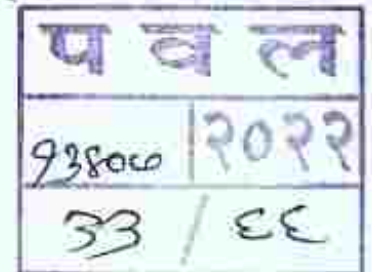 प व ल
१३४०७ २०२२
३३ / ६६